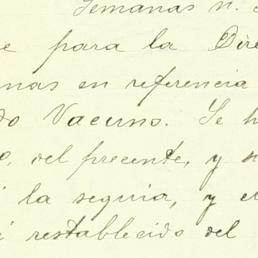 Semanas n.
e para la Dire
nas en referencia
do Vacuno. Se h
o, del precente, y
i la seguia, y e
é restablecido del